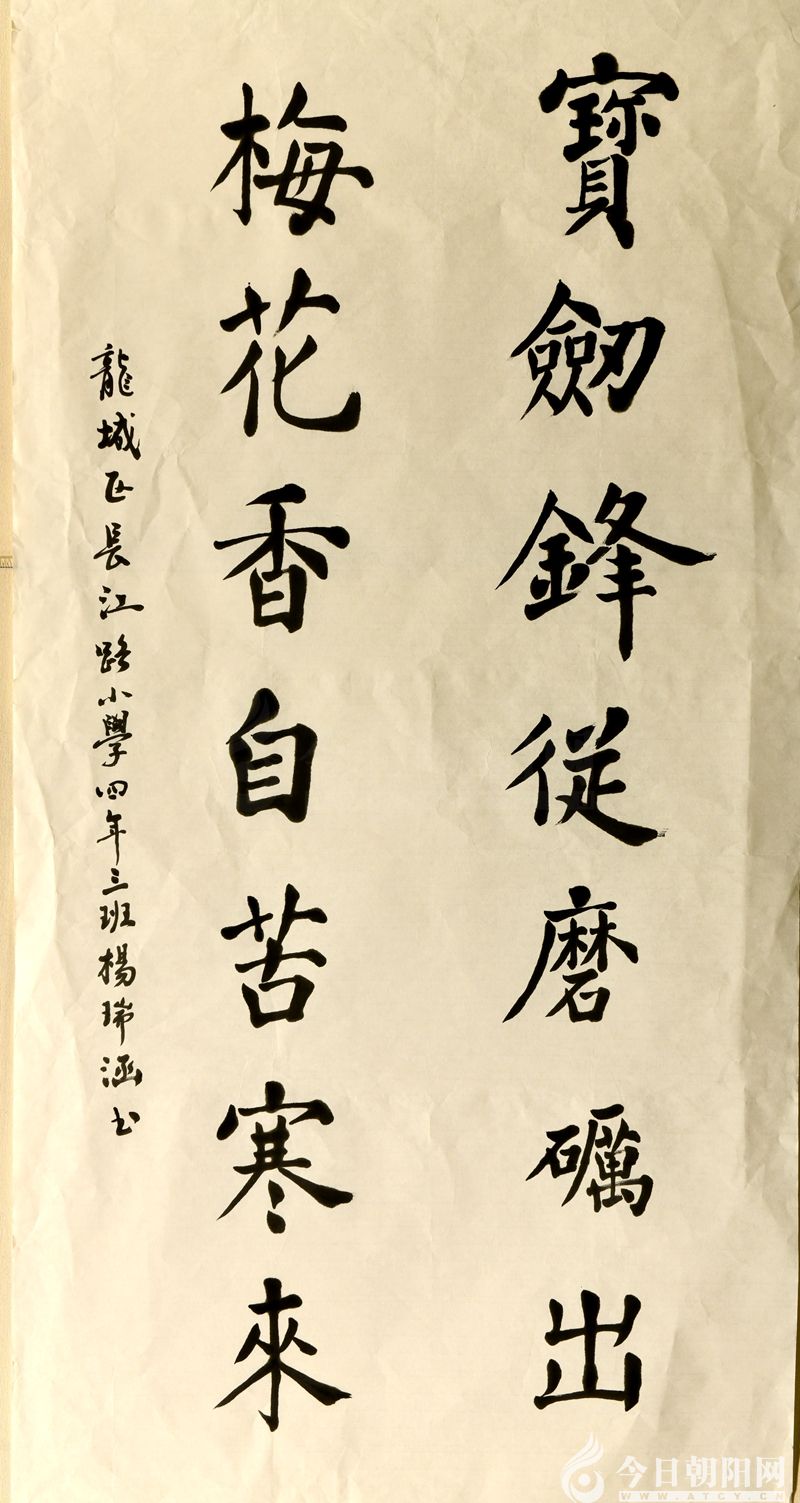 寶劒鋒從磨礪出
梅花香自苦寒來
龍城区長江路小學四年三班楊瑞涵书
今日朝阳网
WWW.ATCY.CN